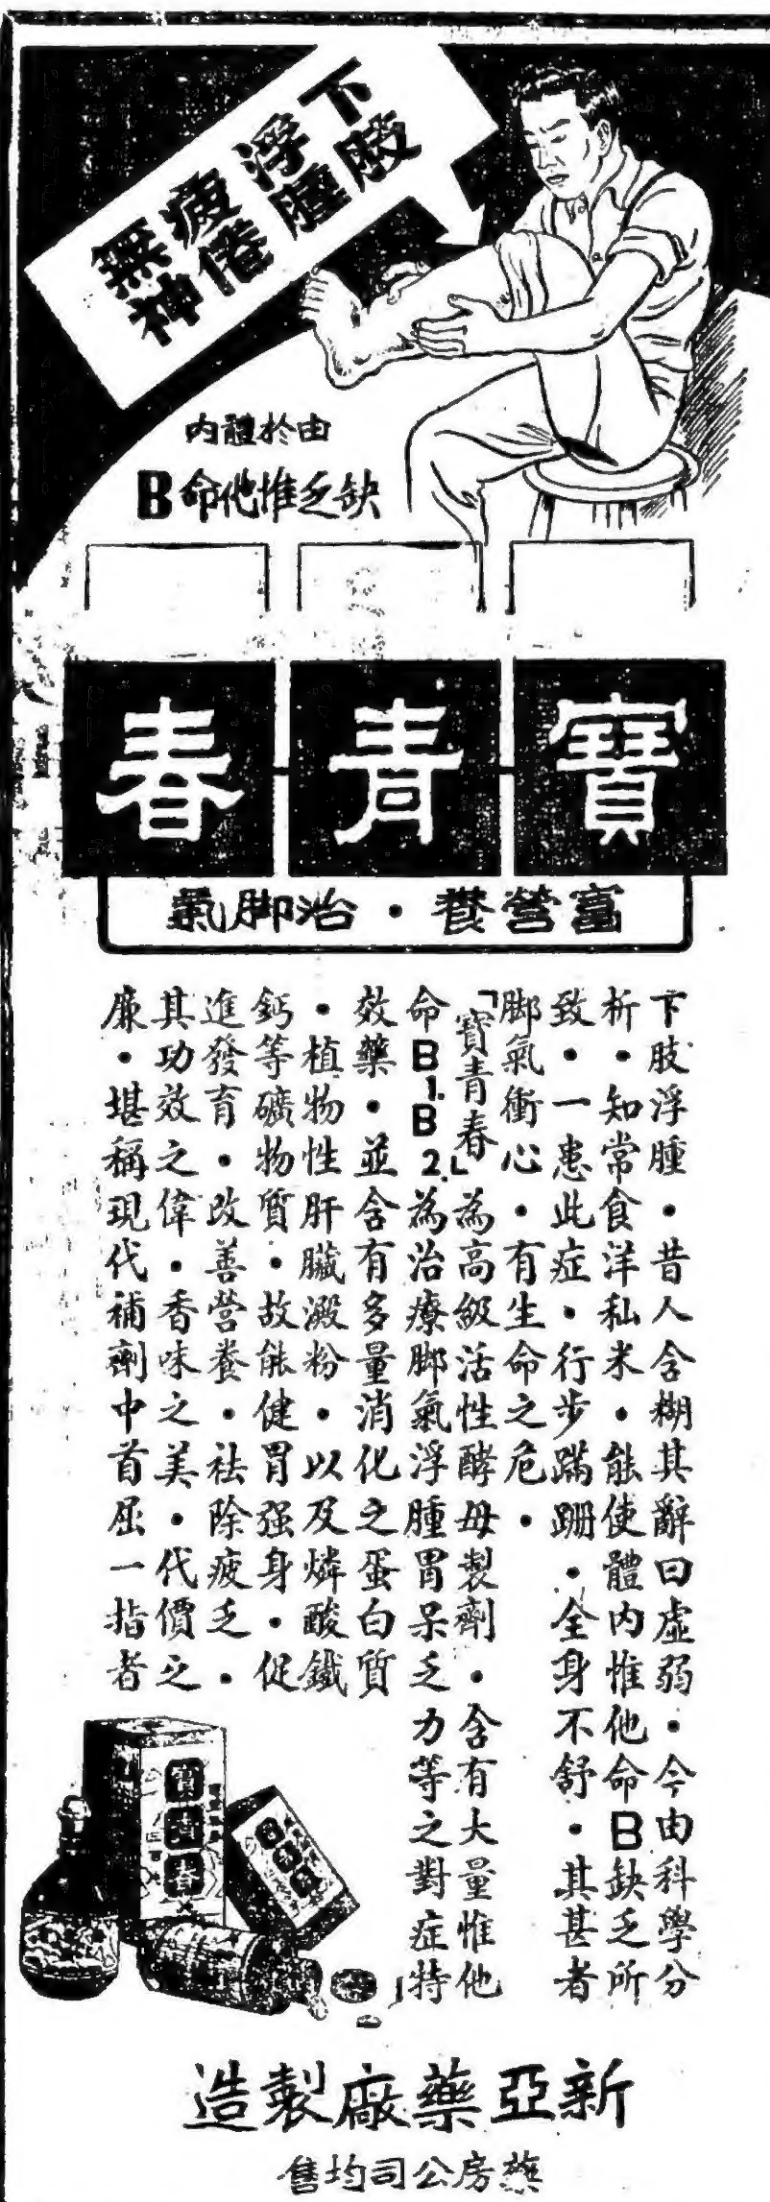 下肢
浮腫
疲倦
無神
由於體內
缺乏惟他命B
寶青春
富營養・治脚氣
下肢浮腫・昔人含糊其辭曰虛弱・今由科學分
析・知常食洋私米・能使體內惟他命B缺乏所
致・一患此症・行步蹣跚・全身不舒・其甚者
脚氣衝心・有生命之危・
「寶青春」為高級活性酵母製劑・含有大量惟他
命B1.B2.為治療脚氣浮腫胃呆乏力等之對症特
效藥・並含有多量消化之蛋白質
・植物性肝臟澱粉・以及燐酸鐵
鈣等礦物質・故能健胃强身・促
進發育・改善營養・祛除疲乏・
其功效之偉・香味之美・代價之
廉・堪稱現代補劑中首屈一指者
寶青春
新亞藥廠製造
藥房公司均售